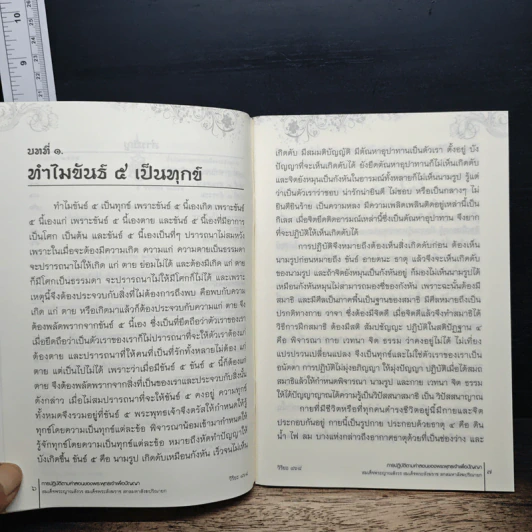 บทที่ ๑.
ทำไมขันธ์ ๕ เป็นทุกข์
ทำไมขันธ์ ๕ เป็นทุกข์ เพราะขันธ์ ๕ นี้เองเกิด เพราะขันธ์
๕ นี้เองแก่ เพราะขันธ์ ๕ นี้เองตาย และขันธ์ ๕ นี้เองที่มีอาการ
เป็นโศก เป็นต้น และขันธ์ ๕ นี้เองเป็นที่ๆ ปรารถนาไม่สมหวัง
เพราะในเมื่อจะต้องมีความเกิด ความแก่ ความตายเป็นธรรมดา
จะปรารถนาไม่ให้เกิด แก่ ตาย ย่อมไม่ได้ และเมื่อจะต้อง
ก็มีโศกเป็นธรรมดา จะปรารถนาไม่ให้มีโศกก็ไม่ได้ และเพราะ
เหตุนี้จึงต้องประจวบกับสิ่งที่ไม่ต้องการถึงพบ คือพบกับความ
เกิด แก่ ตาย หรือเกิดมาแล้วก็ต้องประจวบกับความแก่ ตาย จึง
ต้องพลัดพรากจากขันธ์ ๕ นี้เอง ซึ่งเป็นที่ยึดถือว่าตัวเราของเรา
เมื่อยึดถือว่าเป็นตัวเราของเราก็ไม่ปรารถนาที่จะให้ตัวเราต้องแก่
ต้องตาย และปรารถนาที่ให้คนที่เป็นที่รักทั้งหลายไม่ต้อง แก่
ตาย แต่เป็นไปไม่ได้ เพราะว่าเมื่อมีขันธ์ ๕ ขันธ์ ๕ นี้ก็ต้องแก่
ตาย จึงต้องพลัดพรากจากสิ่งที่เป็นของเราและประจวบกับสิ่งนั้น
ดังกล่าว เมื่อไม่สมปรารถนาที่จะให้ขันธ์ ๕ คงอยู่ ความทุกข์
ทั้งหมดจึงรวมอยู่ที่ขันธ์ ๕ พระพุทธเจ้าจึงตรัสให้กำหนดให้รู้
ทุกข์โดยความเป็นทุกข์แต่ละข้อ พิจารณาน้อมเข้ามากำหนดให้
รู้จักทุกข์โดยความเป็นทุกข์แต่ละข้อ หมายถึงหัดทำปัญญาให้
บังเกิดขึ้น ขันธ์ ๕ คือ นามรูป เกิดดับเหมือนกังหัน เร็วจนไม่เห็น
๖
เกิดดับ มีสมมติบัญญัติ มีตัณหาอุปาทานเป็นตัวเรา ตั้งอยู่ บัง
ปัญญาที่จะเห็นเกิดดับได้ ยังยึดตัณหาอุปาทานก็ไม่เห็นเกิดดับ
และจิตยังหมุนเป็นกังหันในอารมณ์ทั้งหลายก็ไม่เห็นนามรูป รู้แต่
ว่าเป็นตัวเราว่าชอบ น่ารักน่ายินดี ไม่ชอบ หรือเป็นกลางๆ ไม่
ยินดียินร้าย เป็นความหลง มีความเพลิดเพลินติดอยู่เหล่านี้เป็น
กิเลส เมื่อจิตยึดติดอารมณ์เหล่านี้ซึ่งเป็นตัณหาอุปาทาน จึงยาก
ที่จะปฏิบัติให้เห็นเกิดดับได้
การปฏิบัติจึงหมายถึงต้องเห็นสิ่งเกิดดับก่อน ต้องเห็น
นามรูปก่อนหมายถึง ขันธ์ อายตนะ ธาตุ แล้วจึงจะเห็นเกิดดับ
ของนามรูป และถ้าจิตยังหมุนเป็นกังหันอยู่ ก็มองไม่เห็นนามรูปได้
เหมือนกังหันหมุนไม่สามารถมองซี่ของกังหัน เพราะฉะนั้นต้องมี
สมาธิ และมีศีลเป็นภาคพื้นเป็นฐานของสมาธิ มีศีลหมายถึงเป็น
ปรกติทางกาย วาจา ซึ่งต้องมีจิตเป็นปรกติ เมื่อจิตดีแล้วจึงทำสมาธิได้
วิธีการฝึกสมาธิ ต้องมีสติ สัมปชัญญะ ปฏิบัติในสติปัฏฐาน ๔
คือ พิจารณา กาย เวทนา จิต ธรรม ว่าคงอยู่ไม่ได้ ไม่เที่ยง
แปรปรวนเปลี่ยนแปลง จึงเป็นทุกข์และไม่ใช่ตัวเราของเราเป็น
อนัตตา การปฏิบัติไม่มุ่งอภิญญา ให้มุ่งปัญญา ปฏิบัติเมื่อได้สมถ
สมาธิแล้วให้กำหนดพิจารณา นามรูป และกาย เวทนา จิต ธรรม
ให้ได้ปัญญาญาณได้ความรู้เป็นวิปัสสนาญาณ เป็น วิปัสสนาญาณ
กายที่มีชีวิตหรือที่ทุกคนดำรงชีวิตอยู่นี้มีกายและจิต
ประกอบกันอยู่ กายนี้เป็นรูปกาย ประกอบด้วยธาตุ ๔ คือ ดิน
น้ำ ไฟ ลม บางแห่งกล่าวถึงอากาศธาตุด้วยที่เป็นช่องว่าง และ
๗